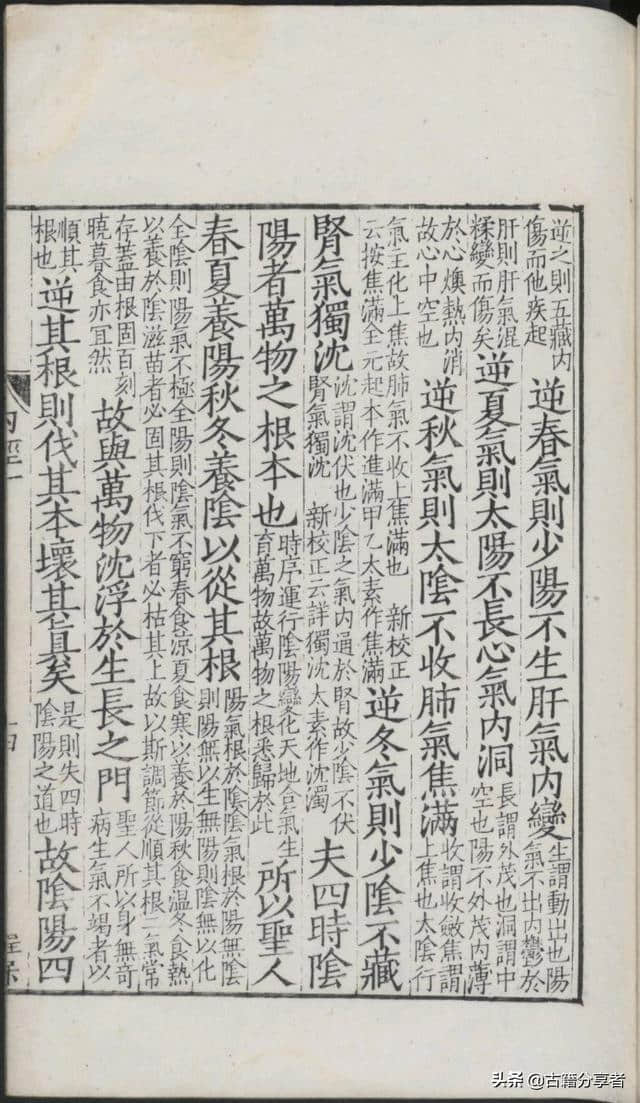 逆之則五藏内
傷而他疾起
逆春氣則少陽不生肝氣内變
生謂動出也陽
氣不出内鬱於
肝則肝氣混
糅變而傷矣
逆夏氣則太陽不長心氣内洞
長謂外茂也洞謂中
空也陽不外茂内薄
於心燠熱内消
故心中空也
逆秋氣則太陰不收肺氣焦滿
收謂收斂焦謂
上焦也太陰行
氣主化上焦故肺氣不收上焦滿也 新校正
云按焦滿全元起本作進滿甲乙太素作焦滿
逆冬氣則少陰不藏
腎氣獨沈
沈謂沈伏也少陰之氣内通於腎故少陰不伏
腎氣獨沈 新校正云詳獨沈太素作沈濁
夫四時陰
陽者萬物之根本也
時序運行陰陽變化天地合氣生
育萬物故萬物之根悉歸於此
所以聖人
春夏養陽秋冬養陰以從其根
陽氣根於陰陰氣根於陽無陰
則陽無以生無陽則陰無以化
全陰則陽氣不極全陽則陰氣不窮春食凉夏食寒以養於陽秋食溫冬食熱
以養於陰滋苗者必固其根伐下者必枯其上故以斯調節從順其根二氣常
存蓋由根固百刻
曉暮食亦宜然
故與萬物沈浮於生長之門
聖人所以身無奇
病生氣不竭者以
順其
根也
逆其根則伐其本壞其真矣
是則失四時
陰陽之道也
故陰陽四
内經一
十四
头条 @古籍分享者